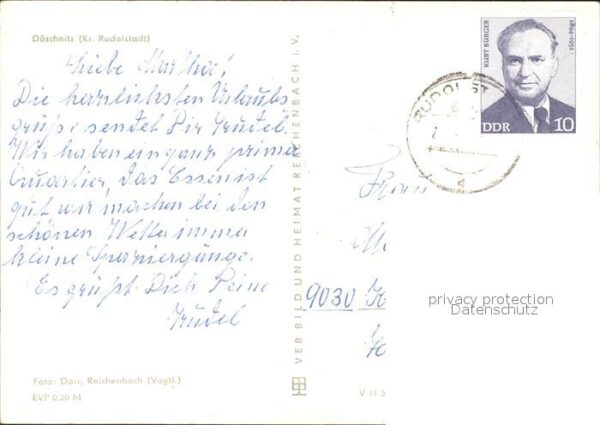 Döschnitz (Kr. Rudolstadt)
Liebe Martha!
Die herrlichsten Urlaubs
grüße sendet Dir Trudel.
Wir haben ein ganz prima
Quartier, das Essen ist
gut, wir machen bei dem
schönen Wetter immer
kleine Spaziergänge.
Es grüßt Dich Deine
Trudel
Foto: Darr, Reichenbach (Vogtl.)
EVP 0,20 M
VEB BILD UND HEIMAT REICHENBACH i. V.
V 11 5
RUDOLST
KURT BÜRGER
1894-1951
DDR 10
9030
privacy protection
Datenschutz